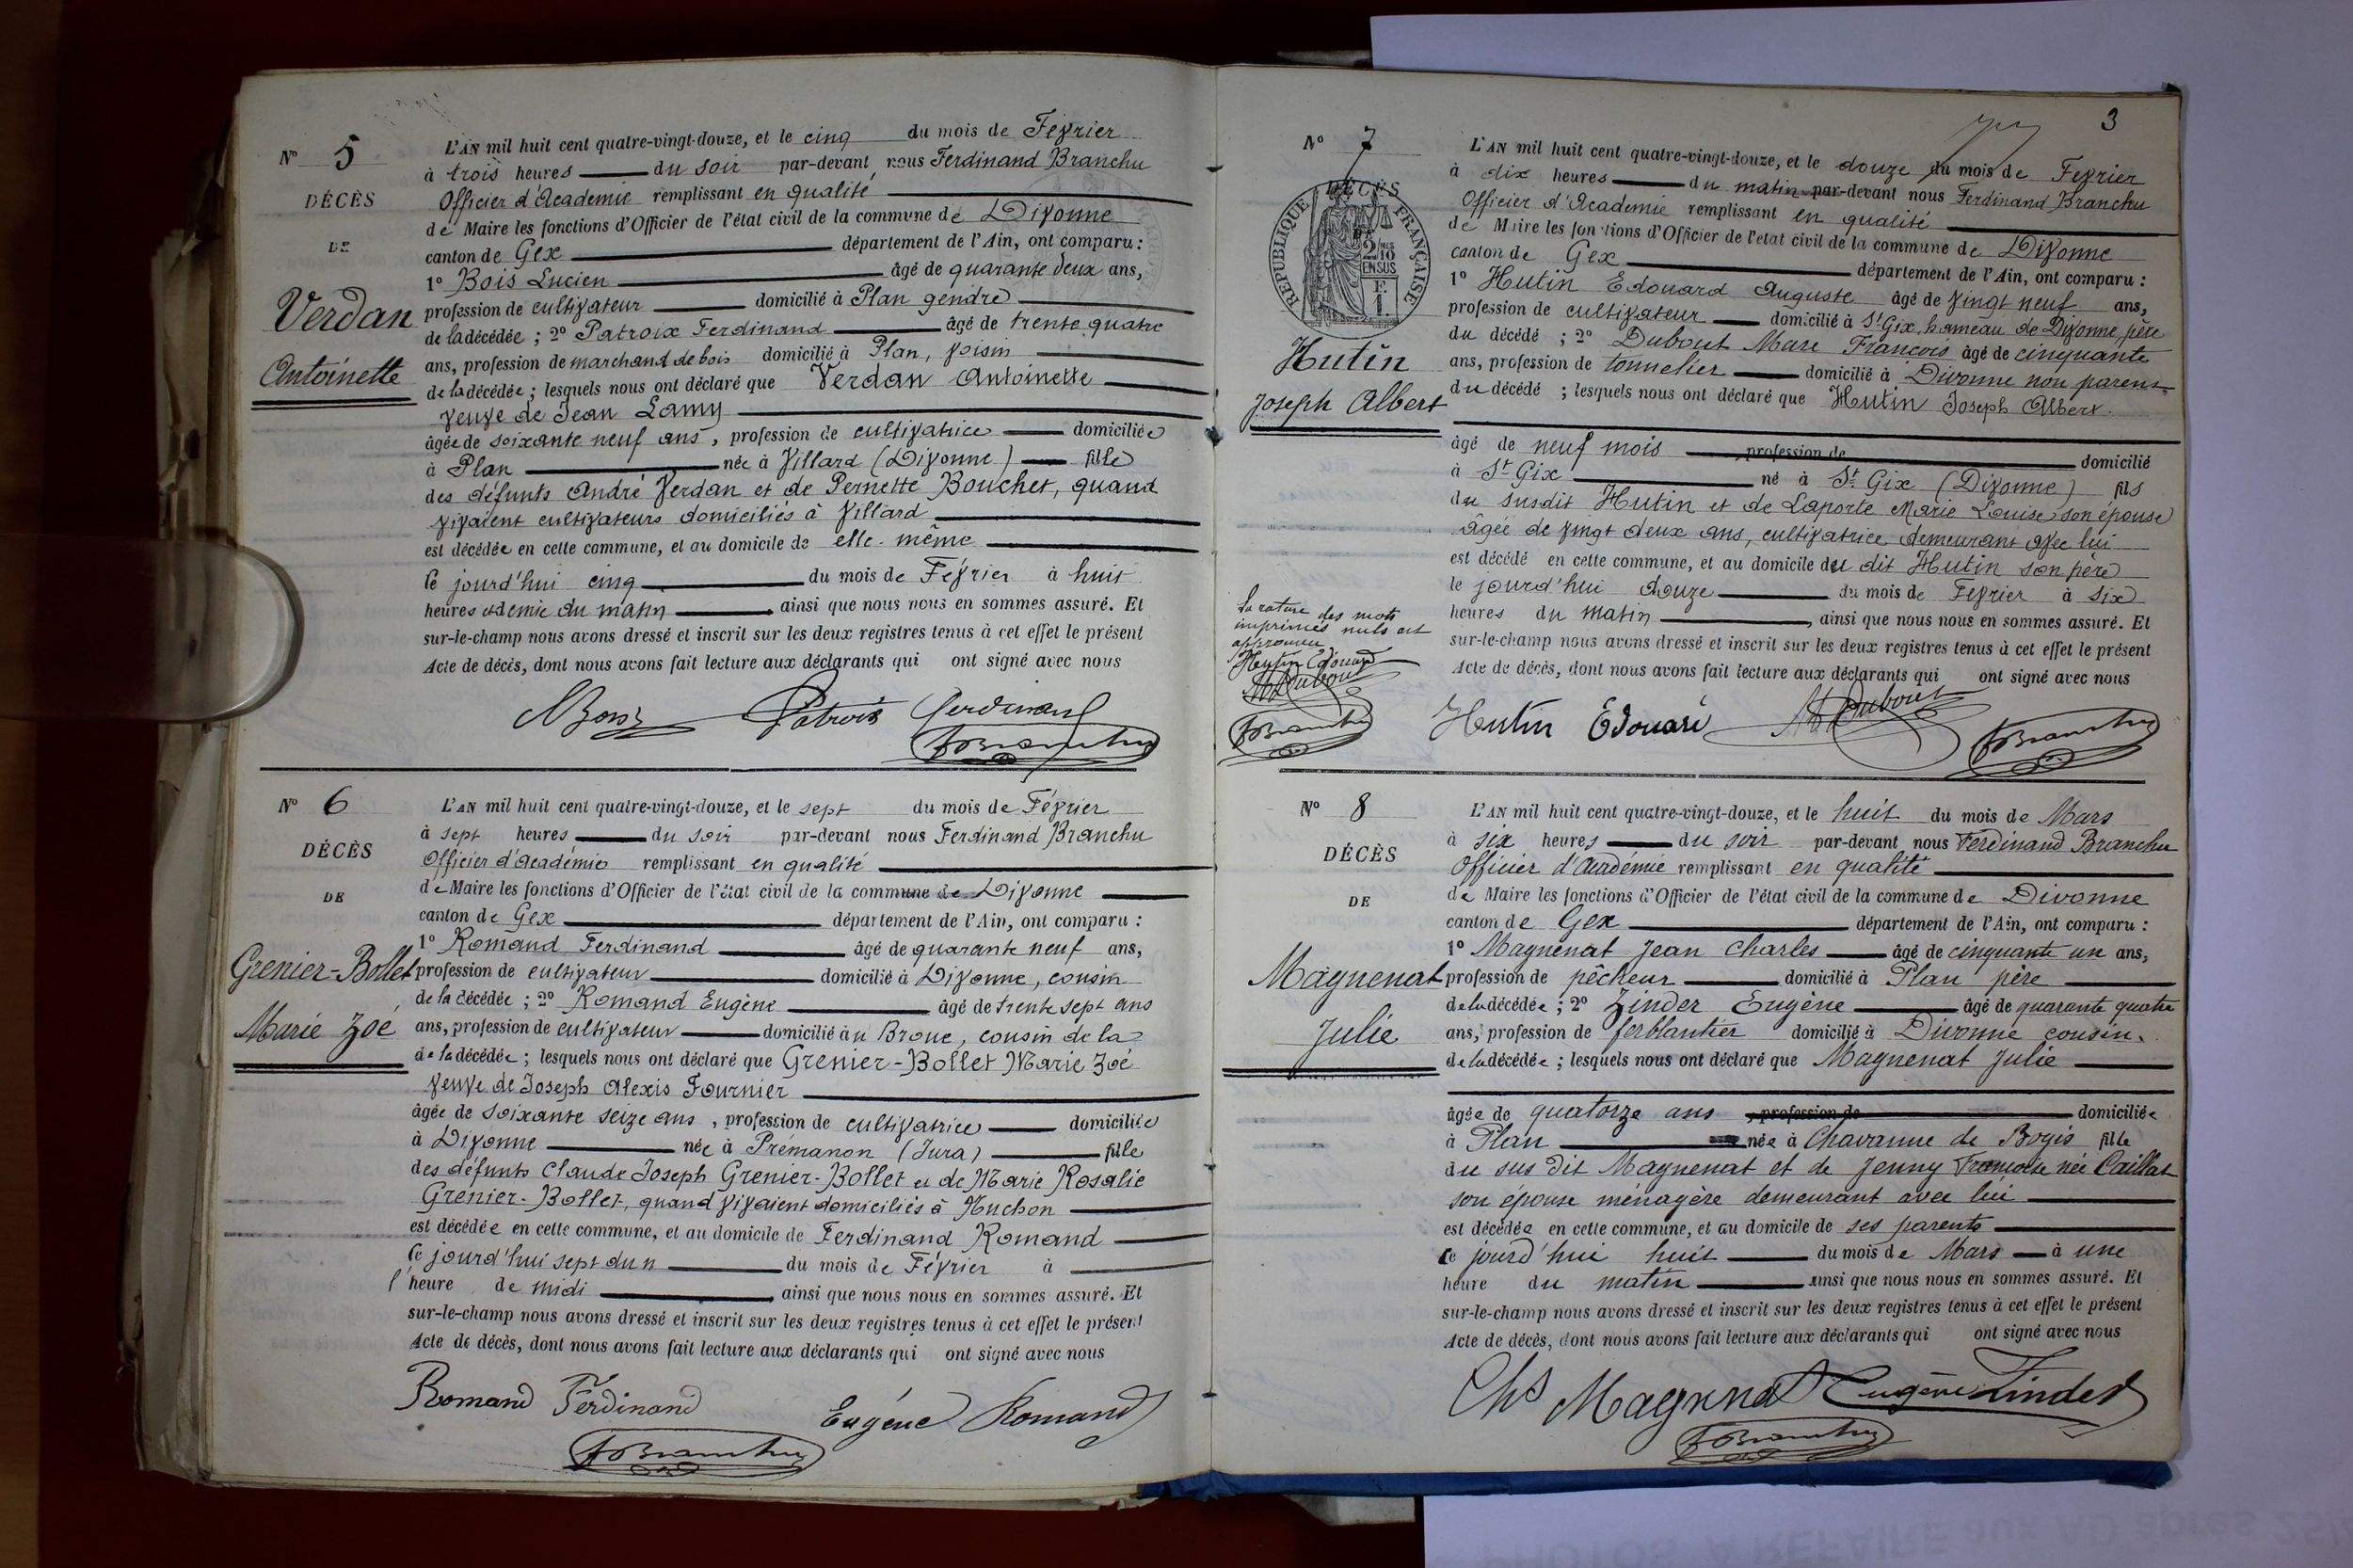 N° 5
DÉCÈS
DE
Verdan
Antoinette
L'AN mil huit cent quatre-vingt-douze, et le cinq du mois de Février
à trois heures du soir par-devant nous Ferdinand Branchu
Officier d'Academie remplissant en qualité
de Maire les fonctions d'Officier de l'état civil de la commune de Divonne
canton de Gex département de l'Ain, ont comparu :
1° Bois Lucien âgé de quarante deux ans,
profession de cultivateur domicilié à Plan gendre
de la décédée ; 2° Patroix Ferdinand âgé de trente quatre
ans, profession de marchand de bois domicilié à Plan, voisin
de la décédée ; lesquels nous ont déclaré que Verdan Antoinette
veuve de Jean Lamy
âgée de soixante neuf ans, profession de cultivatrice domiciliée
à Plan née à Villard (Divonne) fille
des défunts André Verdan et de Pernette Bouchet, quand
vivaient cultivateurs domiciliés à Villard
est décédée en cette commune, et au domicile de elle-même
ce jourd'hui cinq du mois de Février à huit
heures et demie du matin ainsi que nous nous en sommes assuré. Et
sur-le-champ nous avons dressé et inscrit sur les deux registres tenus à cet effet le présent
Acte de décès, dont nous avons fait lecture aux déclarants qui ont signé avec nous
Patroix Ferdinand
FBranchu
N° 6
DÉCÈS
DE
Grenier-Bollet
Marie Zoé
L'AN mil huit cent quatre-vingt-douze, et le sept du mois de Février
à sept heures du soir par-devant nous Ferdinand Branchu
Officier d'académie remplissant en qualité
de Maire les fonctions d'Officier de l'état civil de la commune de Divonne
canton de Gex département de l'Ain, ont comparu :
1° Romand Ferdinand âgé de quarante neuf ans,
profession de cultivateur domicilié à Divonne, cousin
de la décédée ; 2° Romand Eugène âgé de trente sept ans
ans, profession de cultivateur domicilié à u Broue, cousin de la
de la décédée ; lesquels nous ont déclaré que Grenier-Bollet Marie Zoé
veuve de Joseph Alexis Fournier
âgée de soixante seize ans, profession de cultivatrice domiciliée
à Divonne née à Prémanon (Jura) fille
des défunts Claude Joseph Grenier-Bollet et de Marie Rosalie
Grenier-Bollet, quand vivaient domiciliés à
est décédée en cette commune, et au domicile de Ferdinand Romand
ce jourd'hui sept du mois de Février à
l'heure de midi ainsi que nous nous en sommes assuré. Et
sur-le-champ nous avons dressé et inscrit sur les deux registres tenus à cet effet le présent
Acte de décès, dont nous avons fait lecture aux déclarants qui ont signé avec nous
Romand Ferdinand Eugéne Romand
FBranchu
3
N° 7
DÉCÈS
RÉPUBLIQUE FRANÇAISE
2/10 EN SUS
F. 1.
Hutin
Joseph Albert
L'AN mil huit cent quatre-vingt-douze, et le douze du mois de Fevrier
à dix heures du matin par-devant nous Ferdinand Branchu
Officier d'Academie remplissant en qualité
de Maire les fonctions d'Officier de l'etat civil de la commune de Divonne
canton de Gex département de l'Ain, ont comparu :
1° Hutin Edouard Auguste âgé de vingt neuf ans,
profession de cultivateur domicilié à St Gix, hameau de Divonne, père
du décédé ; 2° Dubout Marc François âgé de cinquante
ans, profession de tonnelier domicilié à Divonne non parent
du décédé ; lesquels nous ont déclaré que Hutin Joseph Albert.
âgé de neuf mois , profession de domicilié
à St Gix né à St Gix (Divonne) fils
du susdit Hutin et de Laporte Marie Louise son épouse
âgée de vingt deux ans, cultivatrice demeurant avec lui
est décédé en cette commune, et au domicile du dit Hutin son père
le jourd'hui douze du mois de Fevrier à six
heures du matin, ainsi que nous nous en sommes assuré. Et
sur-le-champ nous avons dressé et inscrit sur les deux registres tenus à cet effet le présent
Acte de décès, dont nous avons fait lecture aux déclarants qui ont signé avec nous
La rature des mots
imprimés nuls est
approuvée
Hutin Edouard
MDubout
FBranchu
Hutin Edouard MDubout FBranchu
N° 8
DÉCÈS
DE
Magnenat
Julie
L'AN mil huit cent quatre-vingt-douze, et le huit du mois de Mars
à six heures du soir par-devant nous Ferdinand Branchu
Officier d'Académie remplissant en qualité
de Maire les fonctions d'Officier de l'état civil de la commune de Divonne
canton de Gex département de l'Ain, ont comparu :
1° Magnenat Jean Charles âgé de cinquante un ans,
profession de pêcheur domicilié à Plan père
de la décédée ; 2° Zinder Eugène âgé de quarante quatre
ans, profession de ferblantier domicilié à Divonne cousin.
de la décédée ; lesquels nous ont déclaré que Magnenat Julie
âgée de quatorze ans , profession de domiciliée
à Plan née à Chavanne de Bogis fille
du sus dit Magnenat et de Jenny Françoise née Caillat
son épouse ménagère demeurant avec lui
est décédée en cette commune, et au domicile de ses parents
ce jourd'hui huit du mois de Mars à une
heure du matin ainsi que nous nous en sommes assuré. Et
sur-le-champ nous avons dressé et inscrit sur les deux registres tenus à cet effet le présent
Acte de décès, dont nous avons fait lecture aux déclarants qui ont signé avec nous
Chs Magnenat Eugène Zinder
FBranchu